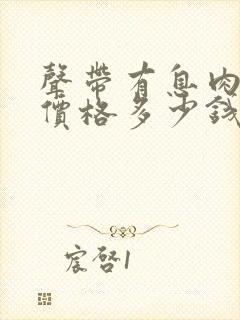 聲帶有息肉
價格多少錢
宸啓1